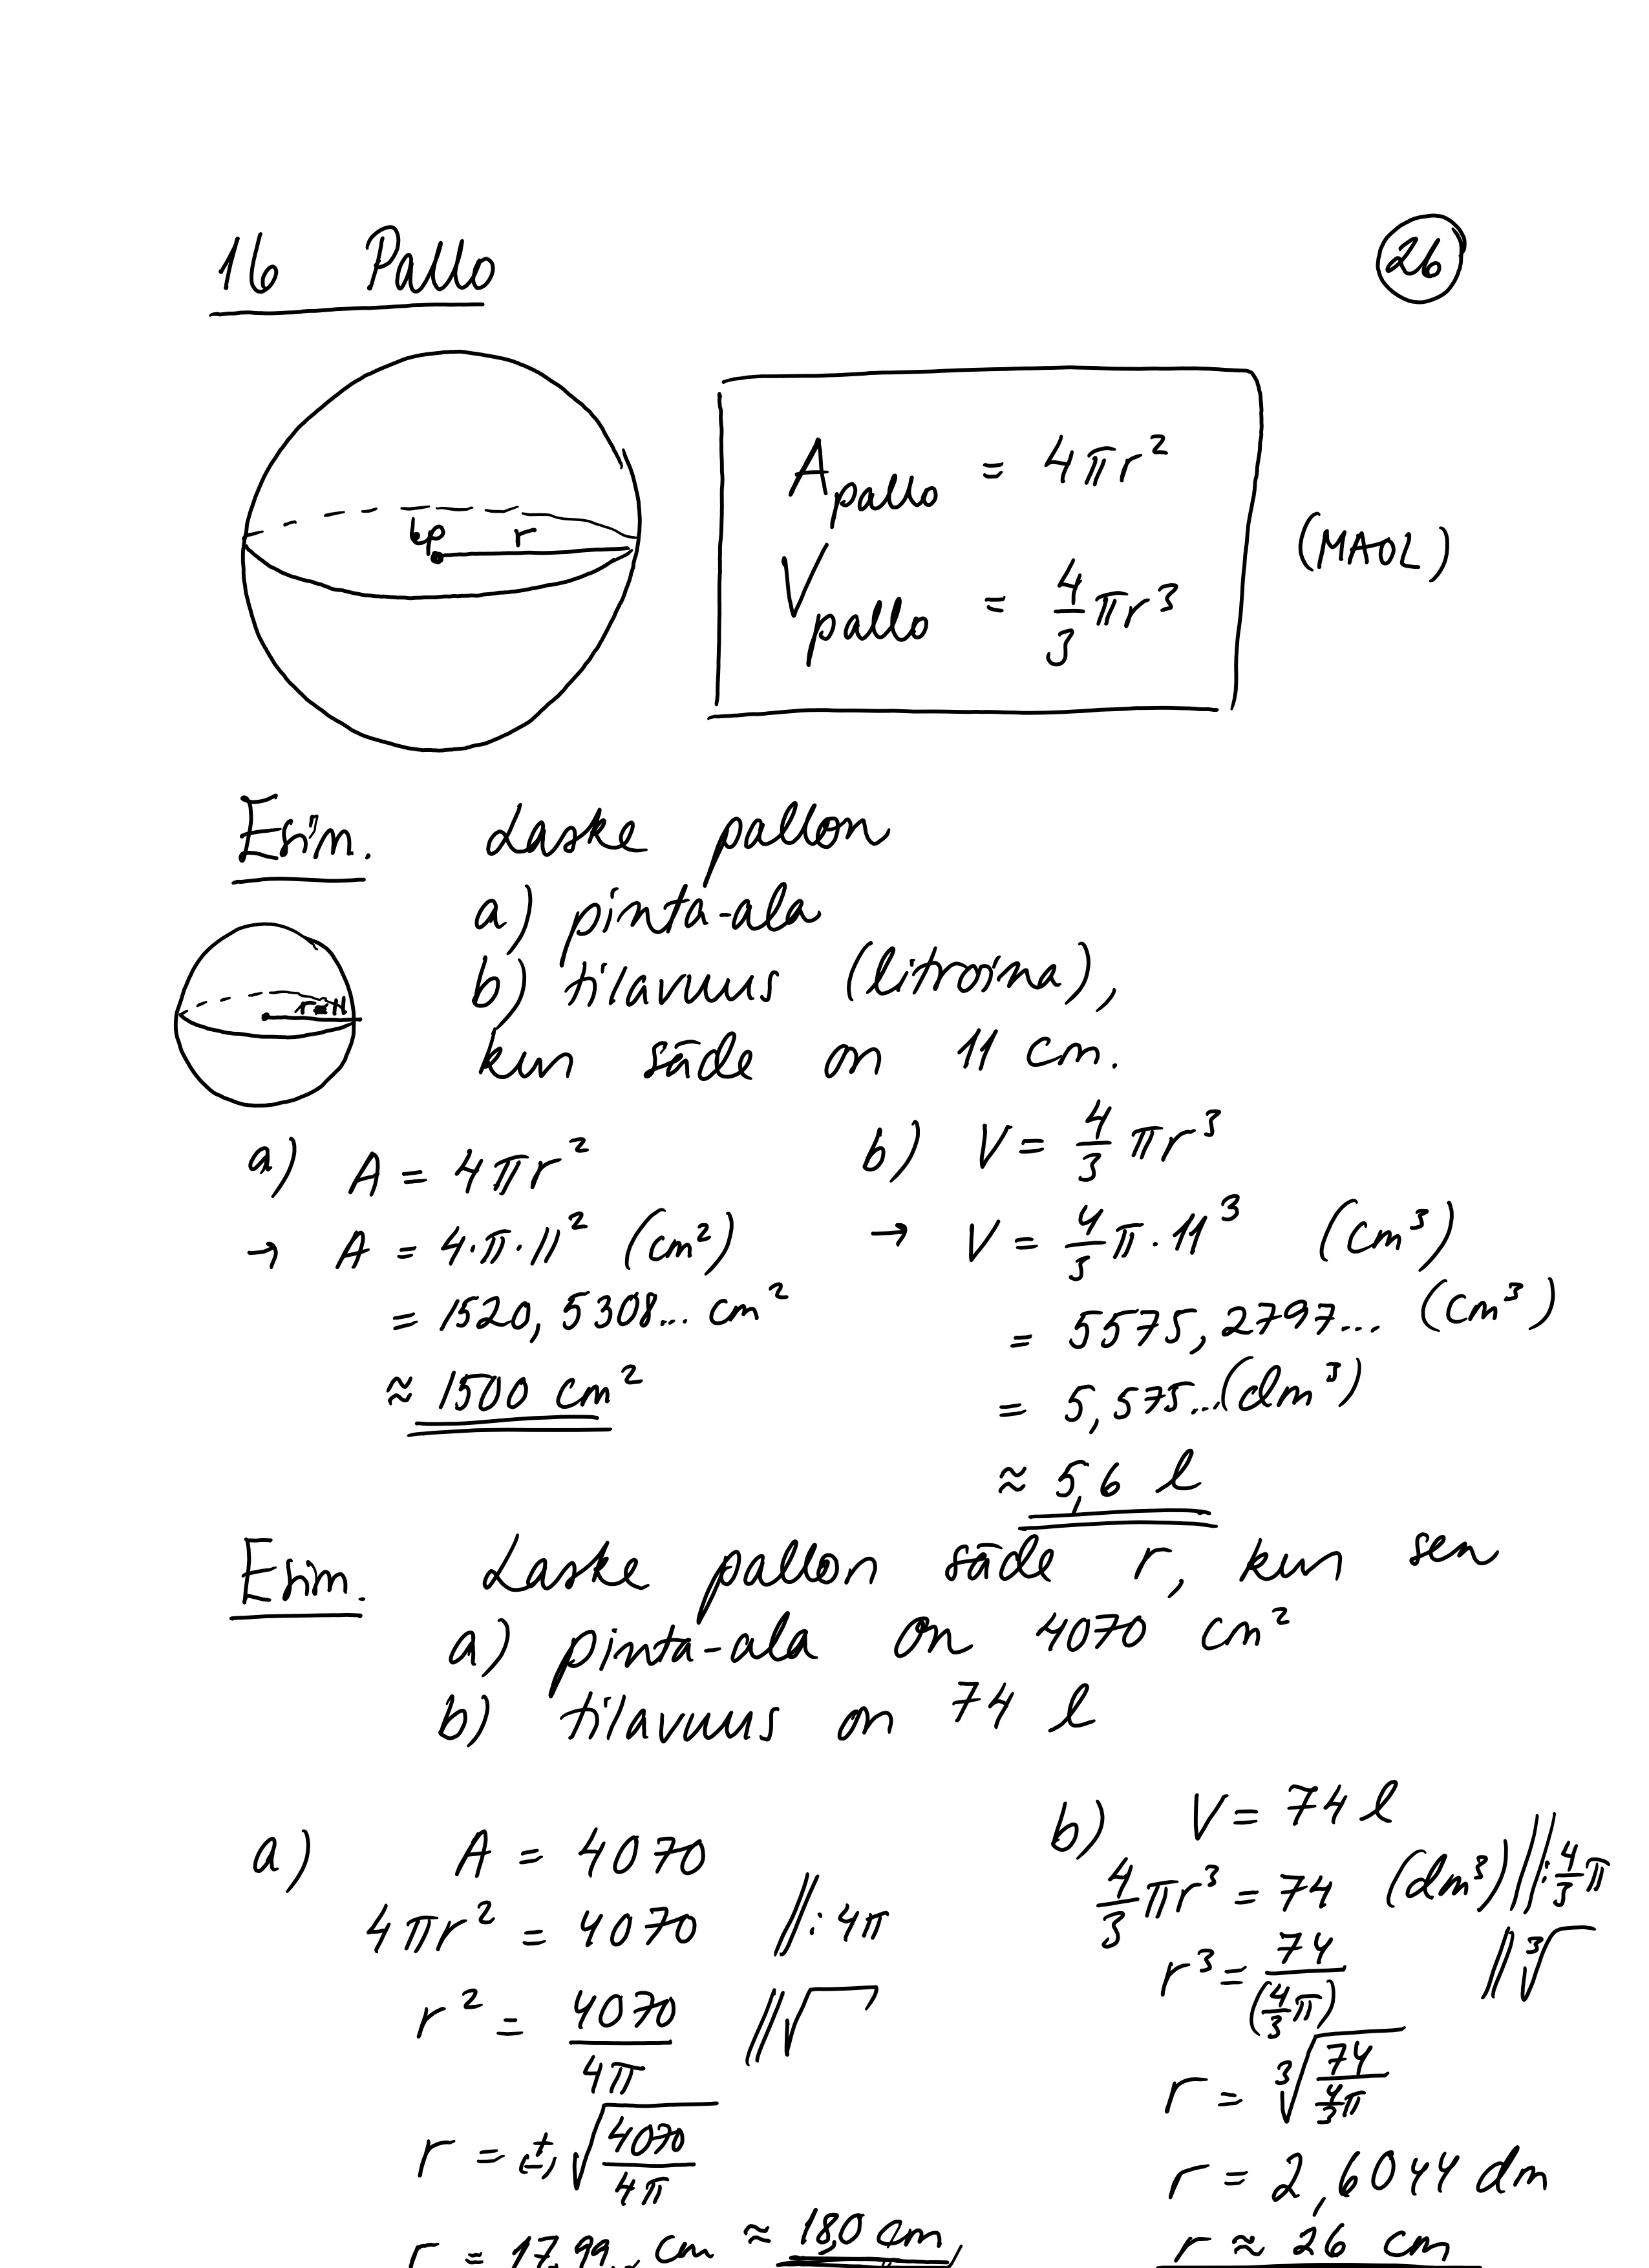 16 Pallo
26
kp r
A_pallo = 4πr²
V_pallo = 4/3 πr³
(MAOL)
Esim. Laske pallon
a) pinta-ala
b) tilavuus (litroina),
kun säde on 11 cm.
r=11
a) A = 4πr²
→ A = 4·π·11² (cm²)
= 1520,5308... cm²
≈ 1500 cm²
b) V = 4/3 πr³
→ V = 4/3 π·11³ (cm³)
= 5575,2797... (cm³)
= 5,575...(dm³)
≈ 5,6 l
Esim. Laske pallon säde r, kun sen
a) pinta-ala on 4070 cm²
b) tilavuus on 74 l
a) A = 4070
4πr² = 4070 ||:4π
r² = 4070/4π ||√
r = (±)√(4070/4π)
r = 17,99... cm ≈ 18,0 cm
b) V = 74 l
4/3 πr³ = 74 (dm³) ||:4/3 π
r³ = 74/(4/3 π) ||³√
r = ³√(74/(4/3 π))
r = 2,6044 dm
r ≈ 26 cm